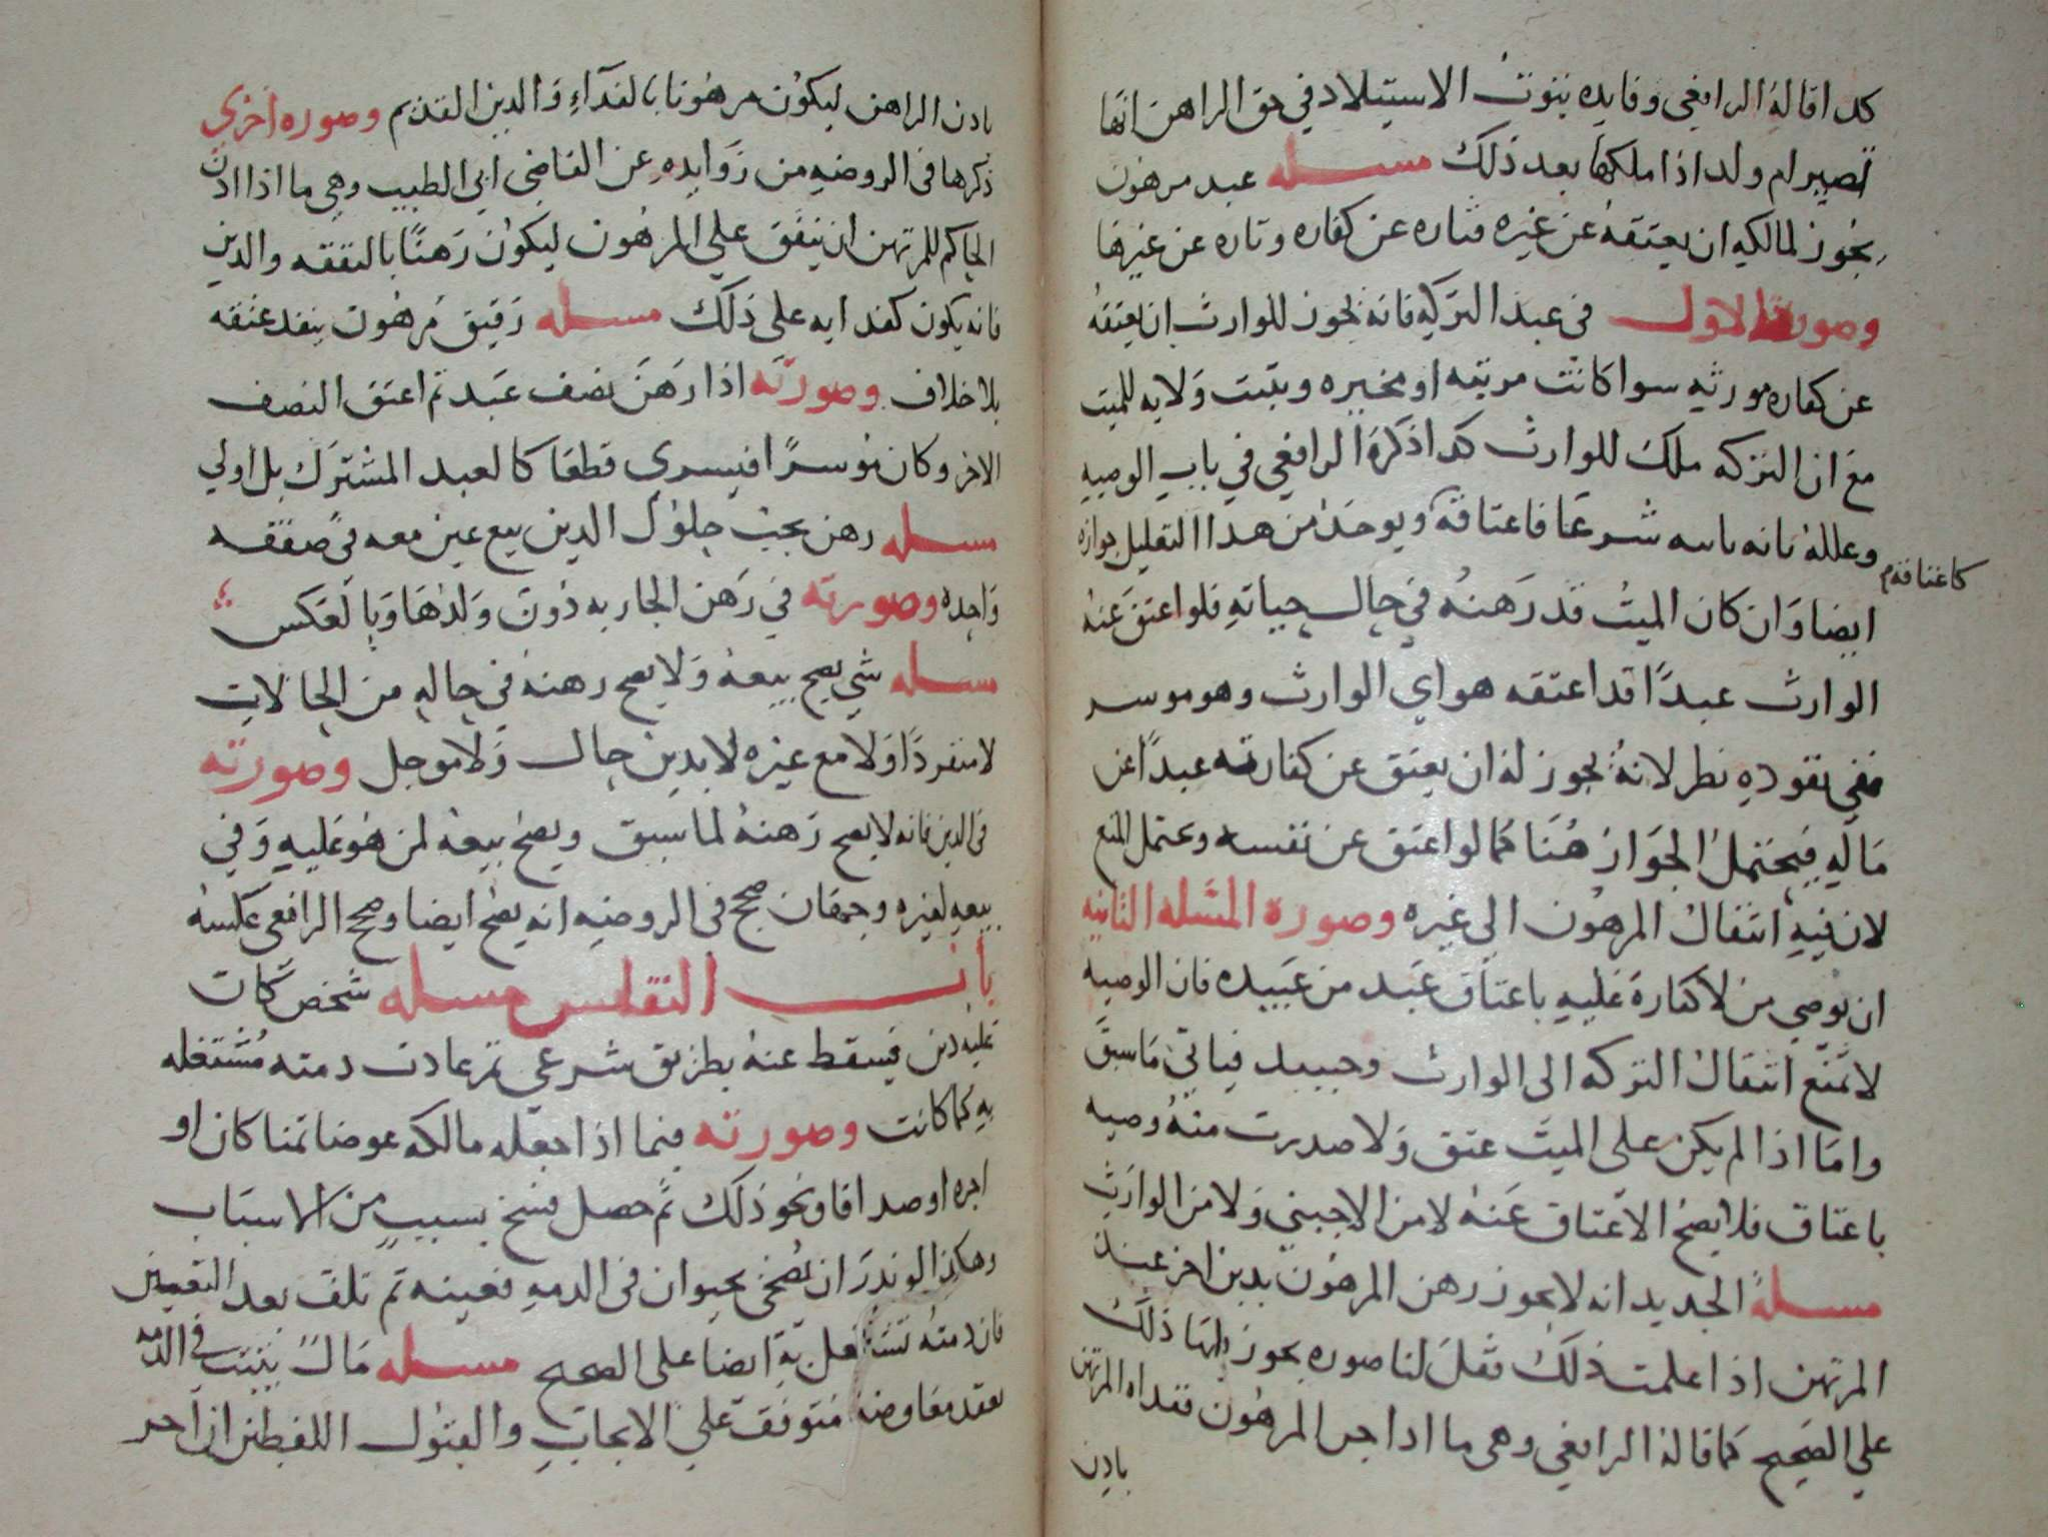 كدا قاله الرافعي وفايده ثبوت الاستيلاد في حق الراهن انها
تصير ام ولد اذا ملكها بعد ذلك مسله عبد مرهون
يجوز لمالكه ان يعتقه عن غيره فتاره عن كفاره وتاره عن غيرها
وصورة الاول في عبد التركه فانه يجوز للوارث ان يعتقه
عن كفاره مورثه سوا كانت مرتبه او مخيره ويثبت ولايه للميت
مع ان التركه ملك للوارث كدا ذكره الرافعي في باب الوصيه
وعلله بانه نايبه شرعا فاعتاقه ويوخذ من هدا التعليل جوازه
كاعتاقهم
ايضا وان كان الميت قد رهنه في حال حياته فلو اعتق عنه
الوارث عبدا قد اعتقه هو اي الوارث وهو موسر
ففي نفوده نظر لانه يجوز له ان يعتق عن كفارته عبدا عن
ماله فيحتمل الجواز هنا كما لو اعتق عن نفسه ويحتمل المنع
لان فيه انتقال المرهون الى غيره وصورة المسله الثانيه
ان يوصي من لا كفارة عليه باعتاق عبد من عبيده فان الوصيه
لا تمنع انتقال التركه الى الوارث وحينيد فياتي ما سبق
واما اذا لم يكن على الميت عتق ولا صدرت منه وصيه
باعتاق فلا يصح الاعتاق عنه لا من الاجنبي ولا من الوارث
مسله الجديد انه لا يجوز رهن المرهون بدين اخر عند
المرتهن اذا علمت ذلك فقل لنا صوره يجوز فيها ذلك
على الصحيح كما قاله الرافعي وهي ما ادا جنى المرهون ففداه المرتهن
بادن
بادن الراهن ليكون مرهونا بالفدآء والدين القديم وصوره اخرى
ذكرها في الروضه من زوايده عن القاضي ابي الطيب وهي ما اذا ادن
الحاكم للمرتهن ان ينفق علي المرهون ليكون رهنا بالنفقه والدين
فانه يكون كفدايه على ذلك مسله رقيق مرهون ينفد عتقه
بلا خلاف وصورته اذا رهن نصف عبد ثم اعتق النصف
الاخر وكان موسرا فيسري قطعا كالعبد المشترك بل اولي
مسله رهن يجب حلول الدين بيع عين معه في صفقه
واحده وصورته في رهن الجاريه دون ولدها وبالعكس
مسله شي يصح بيعه ولا يصح رهنه في حاله من الحالات
لا منفردا ولا مع غيره لا بدين حال ولا موجل وصورته
في الدين فانه لا يصح رهنه لما سبق ويصح بيعه لمن هو عليه وفي
بيعه لغيره وجهان صحح في الروضه انه يصح ايضا وصحح الرافعي عكسه
باب التفليس مسله شخص كان
عليه دين فيسقط عنه بطريق شرعي ثم عادت دمته مشتغله
به كما كانت وصورته فيما اذا جعله مالكه عوضا ثمنا كان او
اجره او صداقا ونحو ذلك ثم حصل فسخ بسبب من الاسباب
وهكذا لو ندر ان يضحي بحيوان في الدمه فعينه ثم تلف بعد التعيين
فان دمته تشتغل به ايضا على الصحيح مسله مال يثبت في الدمه
بعقد معاوضه متوقف علي الايجاب والقبول اللفظين ان اجر